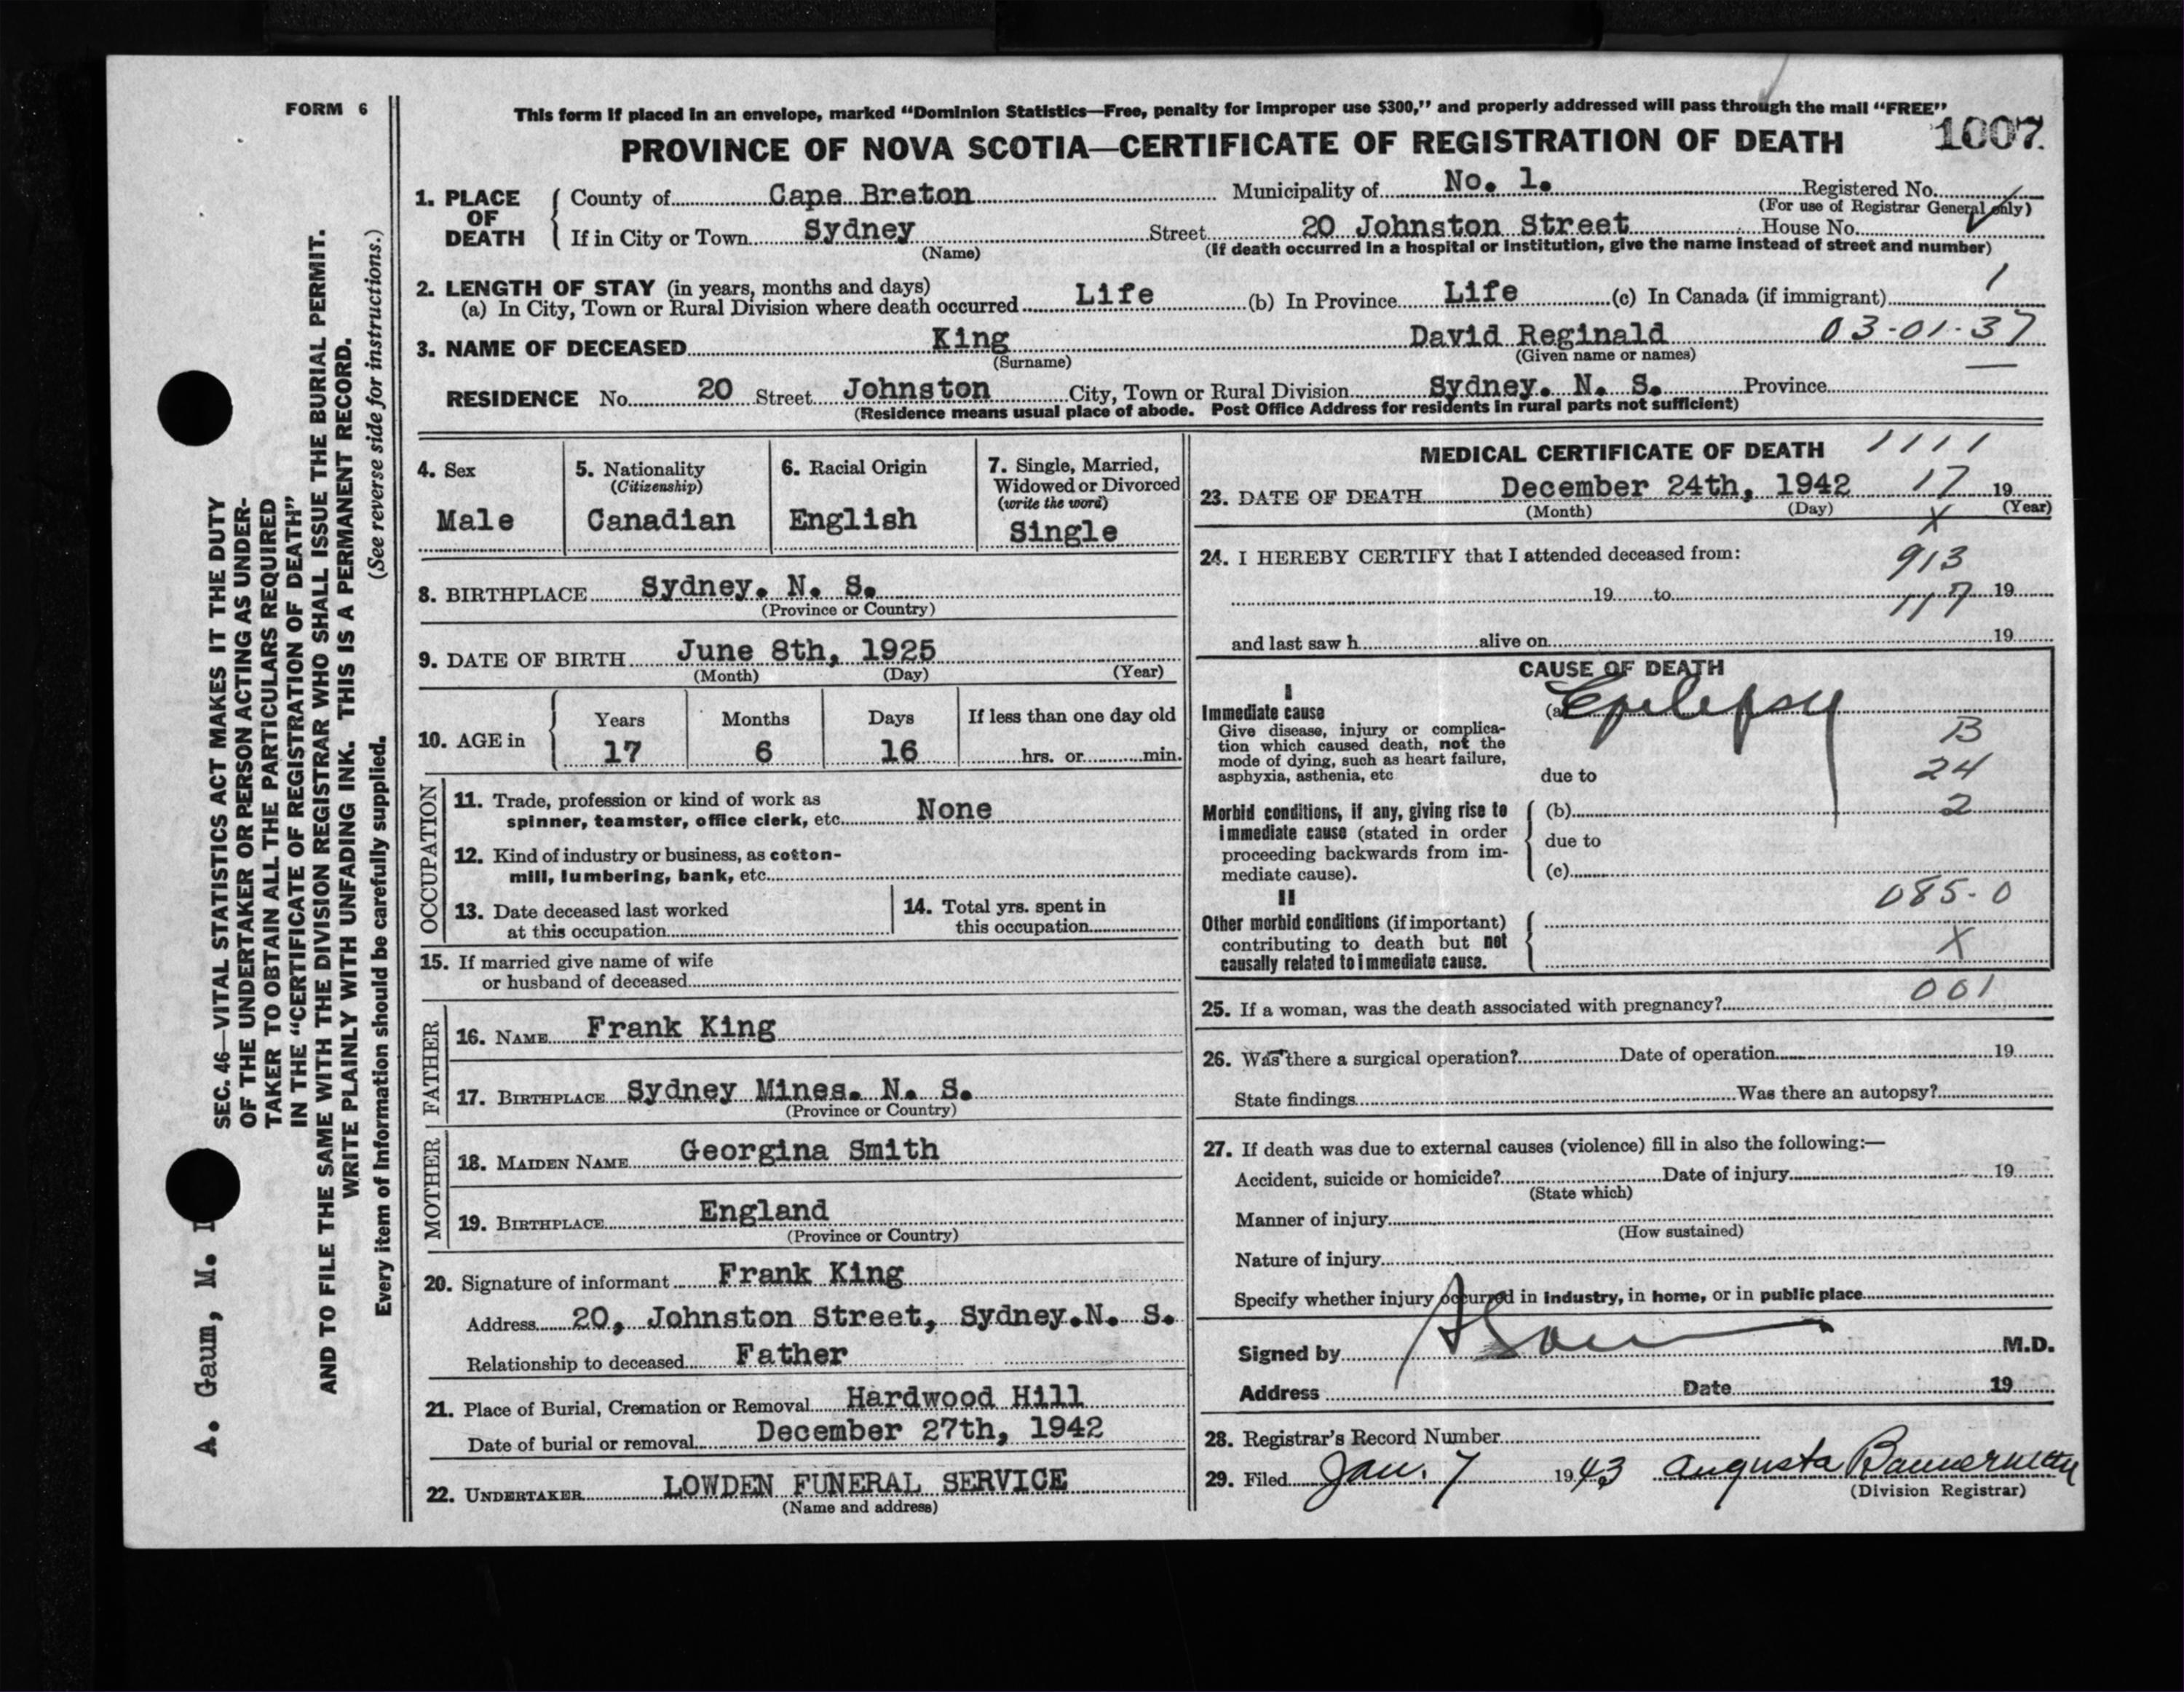 FORM 6
This form if placed in an envelope, marked “Dominion Statistics—Free, penalty for improper use $300,” and properly addressed will pass through the mail “FREE”
PROVINCE OF NOVA SCOTIA—CERTIFICATE OF REGISTRATION OF DEATH 1007
1. PLACE OF DEATH County of Cape Breton Municipality of No. 1. Registered No.
(For use of Registrar General only)
If in City or Town Sydney Street 20 Johnston Street House No.
(Name) (If death occurred in a hospital or institution, give the name instead of street and number)
2. LENGTH OF STAY (in years, months and days) 1
(a) In City, Town or Rural Division where death occurred Life (b) In Province Life (c) In Canada (if immigrant)
3. NAME OF DECEASED King David Reginald 03-01-37
(Surname) (Given name or names)
RESIDENCE No. 20 Street Johnston City, Town or Rural Division Sydney. N. S. Province
(Residence means usual place of abode. Post Office Address for residents in rural parts not sufficient)
4. Sex
Male
5. Nationality
(Citizenship)
Canadian
6. Racial Origin
English
7. Single, Married, Widowed or Divorced
(write the word)
Single
8. BIRTHPLACE Sydney. N. S.
(Province or Country)
9. DATE OF BIRTH June 8th, 1925
(Month) (Day) (Year)
10. AGE in Years Months Days If less than one day old
17 6 16 hrs. or min.
OCCUPATION
11. Trade, profession or kind of work as
spinner, teamster, office clerk, etc. None
12. Kind of industry or business, as cotton-
mill, lumbering, bank, etc.
13. Date deceased last worked
at this occupation
14. Total yrs. spent in
this occupation
15. If married give name of wife
or husband of deceased
FATHER
16. NAME Frank King
17. BIRTHPLACE Sydney Mines. N. S.
(Province or Country)
MOTHER
18. MAIDEN NAME Georgina Smith
19. BIRTHPLACE England
(Province or Country)
20. Signature of informant Frank King
Address 20, Johnston Street, Sydney.N. S.
Relationship to deceased Father
21. Place of Burial, Cremation or Removal Hardwood Hill
Date of burial or removal December 27th, 1942
22. UNDERTAKER LOWDEN FUNERAL SERVICE
(Name and address)
MEDICAL CERTIFICATE OF DEATH 1111
23. DATE OF DEATH December 24th, 1942 17 19
(Month) (Day) (Year)
X
24. I HEREBY CERTIFY that I attended deceased from: 913
19 to 117 19
and last saw h alive on 19
CAUSE OF DEATH
I
Immediate cause (a) Epilepsy
Give disease, injury or complica-
tion which caused death, not the
mode of dying, such as heart failure,
asphyxia, asthenia, etc
B
24
due to
2
Morbid conditions, if any, giving rise to
immediate cause (stated in order
proceeding backwards from im-
mediate cause).
(b)
due to
(c)
II 085-0
Other morbid conditions (if important)
contributing to death but not
causally related to immediate cause.
X
001
25. If a woman, was the death associated with pregnancy?
26. Was there a surgical operation? Date of operation 19
State findings Was there an autopsy?
27. If death was due to external causes (violence) fill in also the following:—
Accident, suicide or homicide? Date of injury 19
(State which)
Manner of injury
(How sustained)
Nature of injury
Specify whether injury occurred in industry, in home, or in public place
Signed by M.D.
Address Date 19
28. Registrar's Record Number
29. Filed Jan. 7 1943 Augusta Bannerman
(Division Registrar)
SEC. 46—VITAL STATISTICS ACT MAKES IT THE DUTY
OF THE UNDERTAKER OR PERSON ACTING AS UNDER-
TAKER TO OBTAIN ALL THE PARTICULARS REQUIRED
IN THE “CERTIFICATE OF REGISTRATION OF DEATH”
AND TO FILE THE SAME WITH THE DIVISION REGISTRAR WHO SHALL ISSUE THE BURIAL PERMIT.
WRITE PLAINLY WITH UNFADING INK. THIS IS A PERMANENT RECORD.
Every item of information should be carefully supplied. (See reverse side for instructions.)
A. Gaum, M.